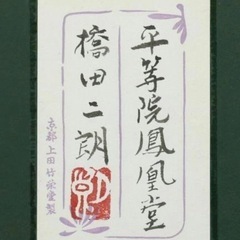 平等院鳳凰堂
橋田二朗
京都 上田竹絵堂製